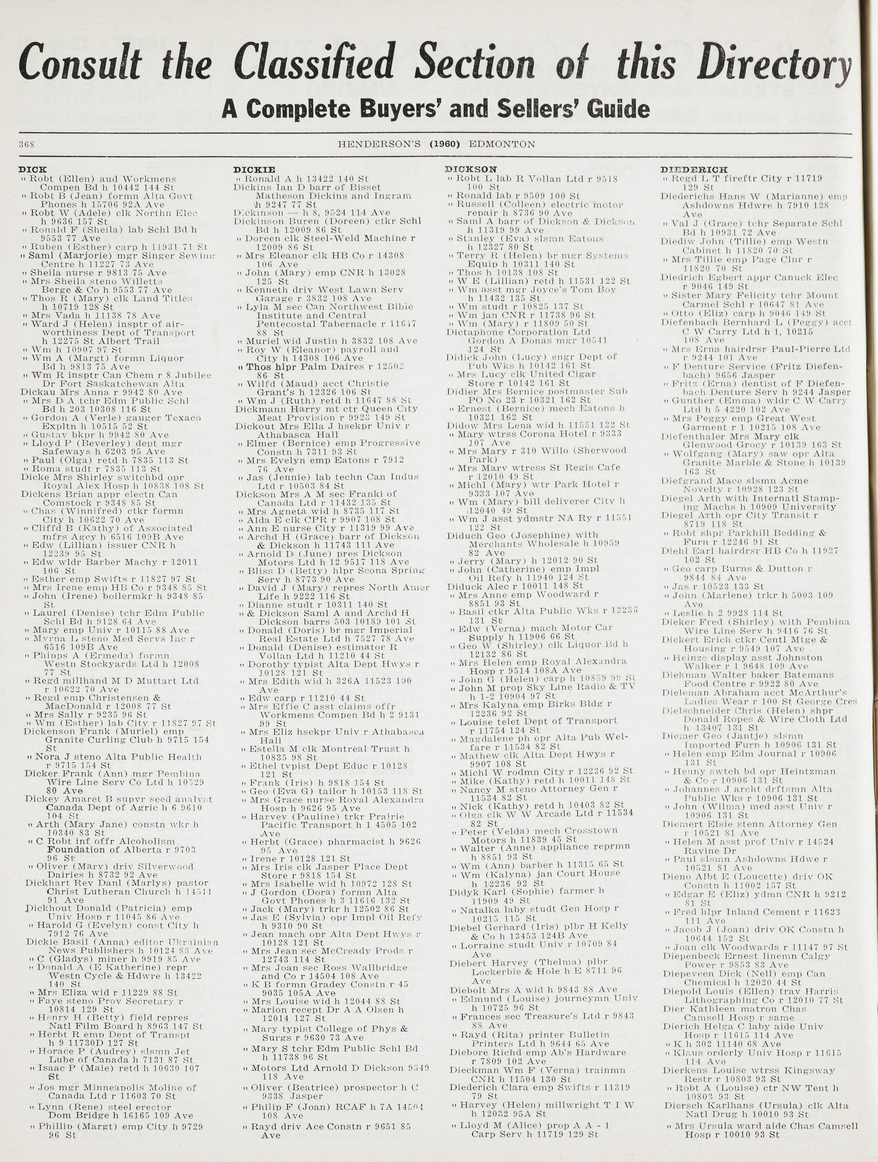 Consult the Classified Section of this Directory
A Complete Buyers' and Sellers' Guide
368
HENDERSON'S (1960) EDMONTON
DICK
" Robt (Ellen) aud Workmens
Compen Bd h 10442 144 St
" Robt B (Jean) formn Alta Govt
Phones h 15706 92A Ave
" Robt W (Adele) clk Northn Elec
h 9636 157 St
" Ronald F (Sheila) lab Schl Bd h
9553 77 Ave
" Ruben (Esther) carp h 11931 71 St
" Saml (Marjorie) mgr Singer Sewing
Centre h 11227 73 Ave
" Sheila nurse r 9813 75 Ave
" Mrs Sheila steno Willetts
Berge & Co h 9553 77 Ave
" Thos R (Mary) clk Land Titles
h 10719 128 St
" Mrs Vada h 11138 78 Ave
" Ward J (Helen) insptr of air-
worthiness Dept of Transport
h 12275 St Albert Trail
" Wm h 10907 97 St
" Wm A (Margt) formn Liquor
Bd h 9813 75 Ave
" Wm R insptr Can Chem r 8 Jubilee
Dr Fort Saskatchewan Alta
Dickau Mrs Anna r 9942 80 Ave
" Mrs D A tchr Edm Public Schl
Bd h 203 10308 116 St
" Gordon A (Verle) gauger Texaco
Expltn h 10515 52 St
" Gustav bkpr h 9942 80 Ave
" Lloyd P (Beverley) dept mgr
Safeways h 6203 95 Ave
" Paul (Olga) retd h 7835 113 St
" Roma studt r 7835 113 St
Dicke Mrs Shirley switchbd opr
Royal Alex Hosp h 10838 108 St
Dickens Brian appr electn Can
Comstock r 9348 85 St
" Chas (Winnifred) ctkr formn
City h 10622 70 Ave
" Cliffd B (Kathy) of Associated
mfrs Agcy h 6516 109B Ave
" Edw (Lillian) issuer CNR h
12239 95 St
" Edw wldr Barber Machy r 12011
106 St
" Esther emp Swifts r 11827 97 St
" Mrs Irene emp HB Co r 9348 85 St
" John (Irene) boilermkr h 9348 85
St
" Laurel (Denise) tchr Edm Public
Schl Bd h 9128 64 Ave
" Mary emp Univ r 10115 88 Ave
" Myrna L steno Med Servs Inc r
6516 109B Ave
" Phipps A (Ermeda) formn
Westn Stockyards Ltd h 12008
77 St
" Regd millhand M D Muttart Ltd
r 10622 70 Ave
" Regd emp Christensen &
MacDonald r 12008 77 St
" Mrs Sally r 9235 96 St
" Wm (Esther) lab City r 11827 97 St
Dickenson Frank (Muriel) emp
Granite Curling Club h 9715 154
St
" Nora J steno Alta Public Health
r 9715 154 St
Dicker Frank (Ann) mgr Pembina
Wire Line Serv Co Ltd h 10529
80 Ave
Dickey Amaret B supvr seed analyst
Canada Dept of Agric h 6 9610
104 St
" Arth (Mary Jane) constn wkr h
10340 83 St
" C Robt inf offr Alcoholism
Foundation of Alberta r 9703
96 St
" Oliver (Mary) driv Silverwood
Dairies h 8732 92 Ave
Dickhart Rev Danl (Marlys) pastor
Christ Lutheran Church h 14511
91 Ave
Dickhout Donald (Patricia) emp
Univ Hosp r 11045 86 Ave
" Harold G (Evelyn) const City h
7912 76 Ave
Dickie Basil (Anna) editor Ukrainian
News Publishers h 10124 88 Ave
" C (Gladys) miner h 9919 85 Ave
" Donald A (E Katherine) repr
Westn Cycle & Hdwre h 13422
140 St
" Mrs Eliza wid r 11229 88 St
" Faye steno Prov Secretary r
10814 129 St
" Henry H (Betty) field repres
Natl Film Board h 8963 147 St
" Herbt R emp Dept of Transpt
h 9 11730D 127 St
" Horace P (Audrey) slsmn Jet
Lube of Canada h 7131 87 St
" Isaac P (Maie) retd h 10630 107
St
" Jos mgr Minneapolis Moline of
Canada Ltd r 11603 70 St
" Lynn (Rene) steel erector
Dom Bridge h 16165 109 Ave
" Phillin (Margt) emp City h 9729
96 St
DICKIE
" Ronald A h 13422 140 St
Dickins Ian D barr of Bisset
Matheson Dickins and Ingram
h 9247 77 St
Dickinson — h 8, 9524 114 Ave
Dickinson Buren (Doreen) ctkr Schl
Bd h 12009 86 St
" Doreen clk Steel-Weld Machine r
12009 86 St
" Mrs Eleanor clk HB Co r 14308
106 Ave
" John (Mary) emp CNR h 13028
125 St
" Kenneth driv West Lawn Serv
Garage r 3832 108 Ave
" Lyla M sec Can Northwest Bible
Institute and Central
Pentecostal Tabernacle r 11647
88 St
" Muriel wid Justin h 3832 108 Ave
" Roy W (Eleanor) payroll aud
City h 14308 106 Ave
" Thos hlpr Palm Daires r 12502
86 St
" Wilfd (Maud) acct Christie
Grant's h 12326 106 St
" Wm J (Ruth) retd h 11647 88 St
Dickmann Harry mt ctr Queen City
Meat Provision r 9923 149 St
Dickout Mrs Ella J hsekpr Univ r
Athabasca Hall
" Elmer (Bernice) emp Progressive
Constn h 7311 93 St
" Mrs Evelyn emp Eatons r 7912
76 Ave
" Jas (Jennie) lab techn Can Indus
Ltd r 10503 84 St
Dickson Mrs A M sec Franki of
Canada Ltd r 11432 135 St
" Mrs Agneta wid h 8735 117 St
" Alda E clk CPR r 9907 108 St
" Ann E nurse City r 11319 99 Ave
" Archd H (Grace) barr of Dickson
& Dickson h 11743 111 Ave
" Arnold D (June) pres Dickson
Motors Ltd h 12 9517 118 Ave
" Bliss D (Betty) hlpr Scona Spring
Serv h 8773 90 Ave
" David J (Mary) repres North Amer
Life h 9222 116 St
" Dianne studt r 10311 140 St
" & Dickson Saml A and Archd H
Dickson barrs 503 10189 101 St
" Donald (Doris) br mgr Imperial
Real Estate Ltd h 7527 78 Ave
" Donald (Denise) estimator R
Vollan Ltd h 11210 44 St
" Dorothy typist Alta Dept Hwys r
10128 121 St
" Mrs Edith wid h 326A 11523 100
Ave
" Edw carp r 11210 44 St
" Mrs Effie C asst claims offr
Workmens Compen Bd h 2 9131
99 St
" Mrs Eliz hsekpr Univ r Athabasca
Hall
" Estella M clk Montreal Trust h
10835 98 St
" Ethel typist Dept Educ r 10128
121 St
" Frank (Iris) h 9818 154 St
" Geo (Eva G) tailor h 10153 118 St
" Mrs Grace nurse Royal Alexandra
Hosp h 9626 95 Ave
" Harvey (Pauline) trkr Prairie
Pacific Transport h 1 4505 102
Ave
" Herbt (Grace) pharmacist h 9626
95 Ave
" Irene r 10128 121 St
" Mrs Iris clk Jasper Place Dept
Store r 9818 154 St
" Mrs Isabelle wid h 10972 128 St
" J Gordon (Dora) formn Alta
Govt Phones h 3 11616 132 St
" Jack (Mary) trkr h 12502 86 St
" Jas E (Sylvia) opr Impl Oil Refy
h 9310 90 St
" Jean mach opr Alta Dept Hwys r
10128 121 St
" Mrs Jean sec McCready Prods r
12743 114 St
" Mrs Joan sec Ross Wallbridge
and Co r 14504 108 Ave
" K B formn Gradey Constn r 45
9035 105A Ave
" Mrs Louise wid h 12044 88 St
" Marion recept Dr A A Olsen h
12014 127 St
" Mary typist College of Phys &
Surgs r 9630 73 Ave
" Mary S tchr Edm Public Schl Bd
h 11738 96 St
" Motors Ltd Arnold D Dickson 9549
118 Ave
" Oliver (Beatrice) prospector h C
9338 Jasper
" Philip F (Joan) RCAF h 7A 14504
108 Ave
" Rayd driv Ace Constn r 9651 85
Ave
DICKSON
" Robt L lab R Vollan Ltd r 9518
100 St
" Ronald lab r 9509 100 St
" Russell (Colleen) electric motor
repair h 8736 90 Ave
" Saml A barr of Dickson & Dickson
h 11319 99 Ave
" Stanley (Eva) slsmn Eatons
h 12327 80 St
" Terry R (Helen) br mgr Systems
Equip h 10311 140 St
" Thos h 10138 108 St
" W E (Lillian) retd h 11531 122 St
" Wm asst mgr Joyce's Tom Boy
h 11432 135 St
" Wm studt r 10825 137 St
" Wm jan CNR r 11738 96 St
" Wm (Mary) r 11809 50 St
Dictaphone Corporation Ltd
Gordon A Donas mgr 10541
124 St
Didick John (Lucy) engr Dept of
Pub Wks h 10142 161 St
" Mrs Lucy clk United Cigar
Store r 10142 161 St
Didier Mrs Bernice postmaster Sub
PO No 23 r 10321 162 St
" Ernest (Bernice) mech Eatons h
10321 162 St
Didow Mrs Lena wid h 11551 122 St
" Mary wtrss Corona Hotel r 9333
107 Ave
" Mrs Mary r 310 Willo (Sherwood
Park)
" Mrs Mary wtress St Regis Cafe
r 12010 49 St
" Michl (Mary) wtr Park Hotel r
9333 107 Ave
" Wm (Mary) bill deliverer City h
12040 49 St
" Wm J asst ydmstr NA Ry r 11551
122 St
Diduch Geo (Josephine) with
Merchants Wholesale h 10959
82 Ave
" Jerry (Mary) h 12012 90 St
" John (Catherine) emp Impl
Oil Refy h 11940 124 St
Diduck Alec r 10011 148 St
" Mrs Anne emp Woodward r
8851 93 St
" Basil ctkr Alta Public Wks r 12236
131 St
" Edw (Verna) mach Motor Car
Supply h 11906 66 St
" Geo W (Shirley) clk Liquor Bd h
12132 86 St
" Mrs Helen emp Royal Alexandra
Hosp r 9514 108A Ave
" John G (Helen) carp h 10859 99 St
" John M prop Sky Line Radio & TV
h 1-2 10904 97 St
" Mrs Kalyna emp Birks Bldg r
12236 92 St
" Louise telet Dept of Transport
r 11754 124 St
" Magdalene ph opr Alta Pub Wel-
fare r 11534 82 St
" Mathew clk Alta Dept Hwys r
9907 108 St
" Michl W rodmn City r 12236 92 St
" Mike (Kathy) retd h 10011 148 St
" Nancy M steno Attorney Gen r
11534 82 St
" Nick (Kathy) retd h 10403 82 St
" Olga clk W W Arcade Ltd r 11534
82 St
" Peter (Velda) mech Crosstown
Motors h 11839 45 St
" Walter (Anne) appliance reprmn
h 8851 93 St
" Wm (Ann) barber h 11315 65 St
" Wm (Kalyna) jan Court House
h 12236 92 St
Didyk Karl (Sophie) farmer h
11909 49 St
" Natalka laby studt Gen Hosp r
10215 115 St
Diebel Gerhard (Iris) plbr H Kelly
& Co h 13453 124B Ave
" Lorraine studt Univ r 10709 84
Ave
Diebert Harvey (Thelma) plbr
Lockerbie & Hole h E 8711 96
Ave
Diebolt Mrs A wid h 9843 88 Ave
" Edmund (Louise) journeymn Univ
h 10725 96 St
" Frances sec Treasure's Ltd r 9843
88 Ave
" Rayd (Rita) printer Bulletin
Printers Ltd h 9644 65 Ave
Diebore Richd emp Ab's Hardware
r 7809 102 Ave
Dieckman Wm F (Verna) trainmn
CNR h 11504 130 St
Diederich Clara emp Swifts r 11319
79 St
" Harvey (Helen) millwright T I W
h 12032 95A St
" Lloyd M (Alice) prop A A - 1
Carp Serv h 11719 129 St
DIEDERICH
" Regd L T fireftr City r 11719
129 St
Diederichs Hans W (Marianne) emp
Ashdowns Hdwre h 7910 128
Ave
" Val J (Grace) tchr Separate Schl
Bd h 10931 72 Ave
Diediw John (Tillie) emp Westn
Cabinet h 11820 70 St
" Mrs Tillie emp Page Clnr r
11820 70 St
Diedrich Egbert appr Canuck Elec
r 9046 149 St
" Sister Mary Felicity tchr Mount
Carmel Schl r 10647 81 Ave
" Otto (Eliz) carp h 9046 149 St
Diefenbach Bernhard L (Peggy) acct
C W Carry Ltd h 1, 10215
108 Ave
" Mrs Erna hairdrsr Paul-Pierre Ltd
r 9244 101 Ave
" F Denture Service (Fritz Diefen-
bach) 9656 Jasper
" Fritz (Erna) dentist of F Diefen-
bach Denture Serv h 9244 Jasper
" Gunther (Emma) wldr C W Carry
Ltd h 5 4220 102 Ave
" Mrs Peggy emp Great West
Garment r 1 10215 108 Ave
Diefenthaler Mrs Mary clk
Glenwood Grocy r 10139 163 St
" Wolfgang (Mary) saw opr Alta
Granite Marble & Stone h 10139
163 St
Diefgrand Mace slsmn Acme
Novelty r 10928 123 St
Diegel Arth with Internatl Stamp-
ing Machs h 10909 University
Diegel Arth opr City Transit r
8719 118 St
" Robt shpr Parkhill Bedding &
Furn r 12246 91 St
Diehl Earl hairdrsr HB Co h 11927
102 St
" Geo carp Burns & Dutton r
9844 84 Ave
" Jas r 10523 131 St
" John (Marlene) trkr h 5003 109
Ave
" Leslie h 2 9928 114 St
Dieker Fred (Shirley) with Pembina
Wire Line Serv h 9416 76 St
Diekert Erich ctkr Centl Mtge &
Housing r 9549 107 Ave
" Heinze display asst Johnston
Walker r 1 9648 109 Ave
Diekman Walter baker Batemans
Food Centre r 9922 80 Ave
Dieleman Abraham acct McArthur's
Ladies Wear r 100 St George Cres
Dielschneider Chris (Helen) shpr
Donald Ropes & Wire Cloth Ltd
h 13407 131 St
Diemer Geo (Jantje) slsmn
Imported Furn h 10906 131 St
" Helen emp Edm Journal r 10906
131 St
" Henny swtch bd opr Heintzman
& Co r 10906 131 St
" Johannes J archt drftsmn Alta
Public Wks r 10906 131 St
" John (Wilma) med asst Univ r
10906 131 St
Diemert Elsie stenn Attorney Gen
r 10521 81 Ave
" Helen M asst prof Univ r 14524
Ravine Dr
" Paul slsmn Ashdowns Hdwe r
10521 81 Ave
Dieno Albt E (Loucette) driv OK
Constn h 11002 157 St
" Edgar E (Eliz) ydmn CNR h 9212
81 St
" Fred hlpr Inland Cement r 11623
111 Ave
" Jacob J (Joan) driv OK Constn h
10644 152 St
" Joan clk Woodwards r 11147 97 St
Diepenbeck Ernest linemn Calgy
Power r 9853 83 Ave
Diepeveen Dick (Nell) emp Can
Chemical h 12020 44 St
Diepold Louis (Ellen) trav Harris
Lithographing Co r 12010 77 St
Dier Kathleen matron Chas
Camsell Hosp r same
Dierich Helga C laby aide Univ
Hosp r 11615 114 Ave
" K h 302 11140 68 Ave
" Klaus orderly Univ Hosp r 11615
114 Ave
Dierkens Louise wtrss Kingsway
Restr r 10803 93 St
" Robt A (Louise) ctr NW Tent h
10803 93 St
Diersch Karlhans (Ursula) clk Alta
Natl Drug h 10010 93 St
" Mrs Ursula ward aide Chas Camsell
Hosp r 10010 93 St